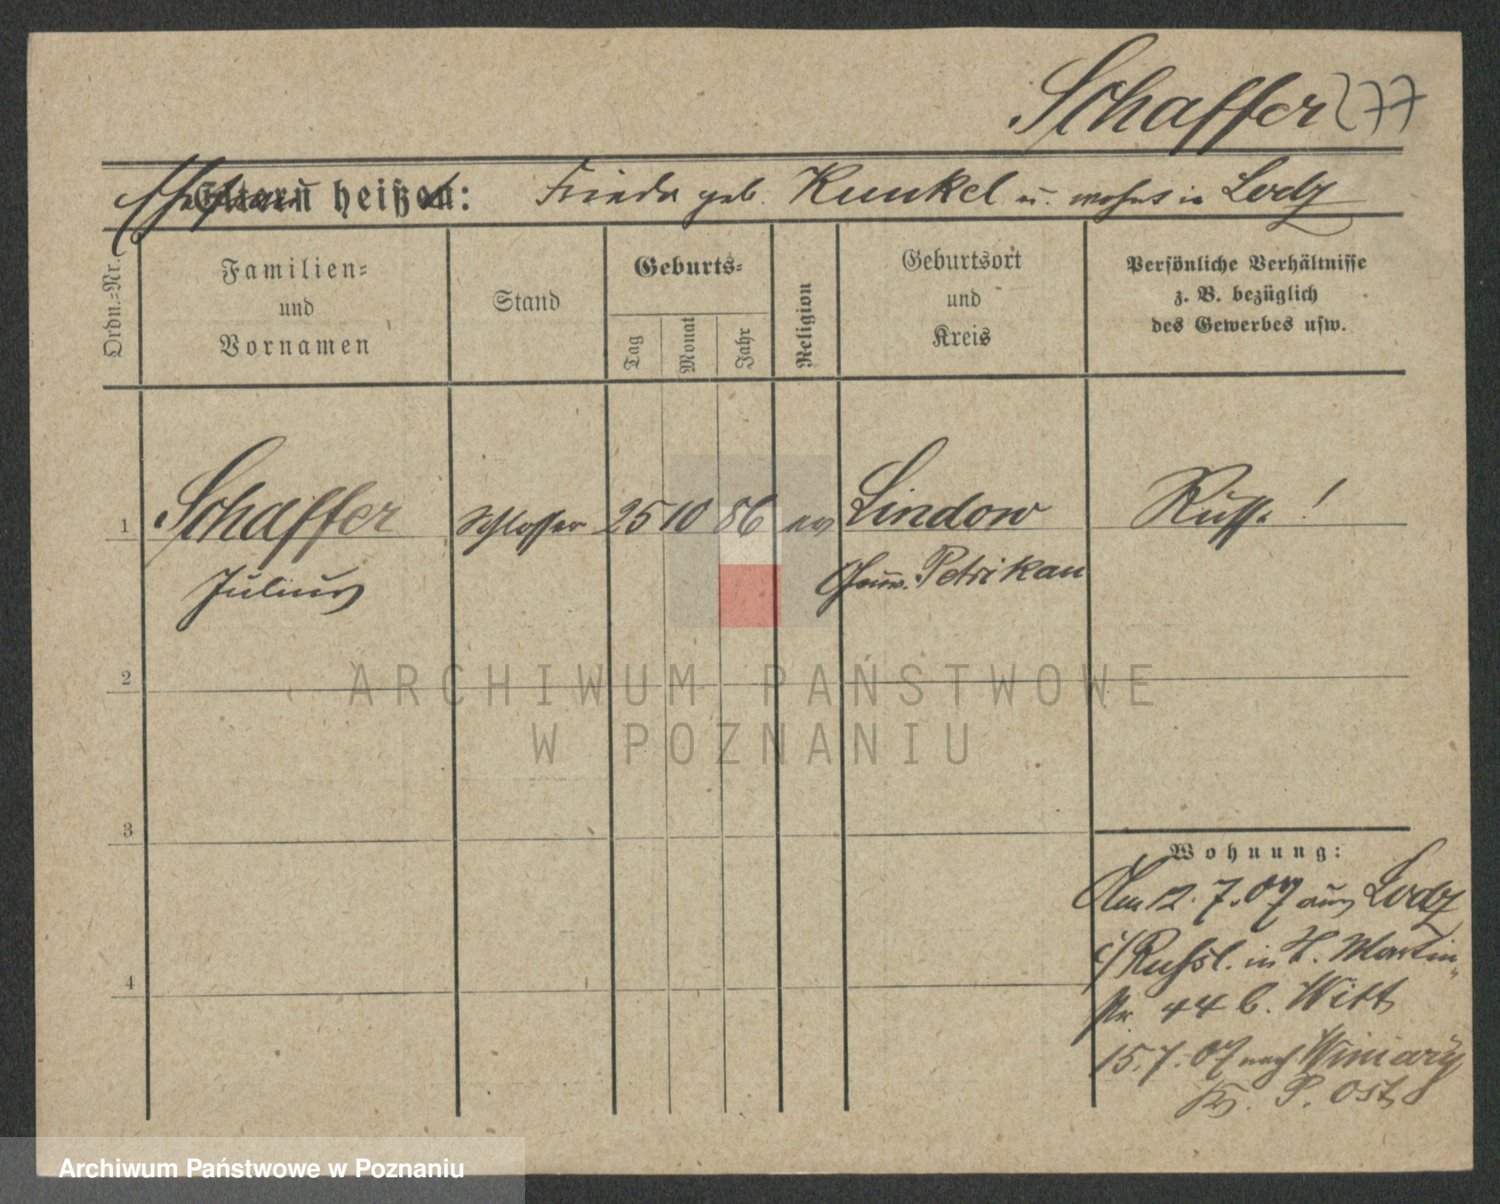 Schaffer 277
Ehefrau heißt: Frieda geb. Kunkel u. wohnt in Lodz
Ordn.-Nr.
Familien-
und
Vornamen
Stand
Geburts-
Tag
Monat
Jahr
Religion
Geburtsort
und
Kreis
Persönliche Verhältnisse
z. B. bezüglich
des Gewerbes usw.
1 Schaffer Schlosser 25 10 86 ev Lindow Russe!
Julius Gouv. Petrikau
2
ARCHIWUM PAŃSTWOWE
W POZNANIU
3
Wohnung:
Am 12.7.07 aus Lodz
i/Russl. in St. Martin-
str. 44 b. Witt
4
15.7.07 nach Winiary
Kr. P. Ost
Archiwum Państwowe w Poznaniu